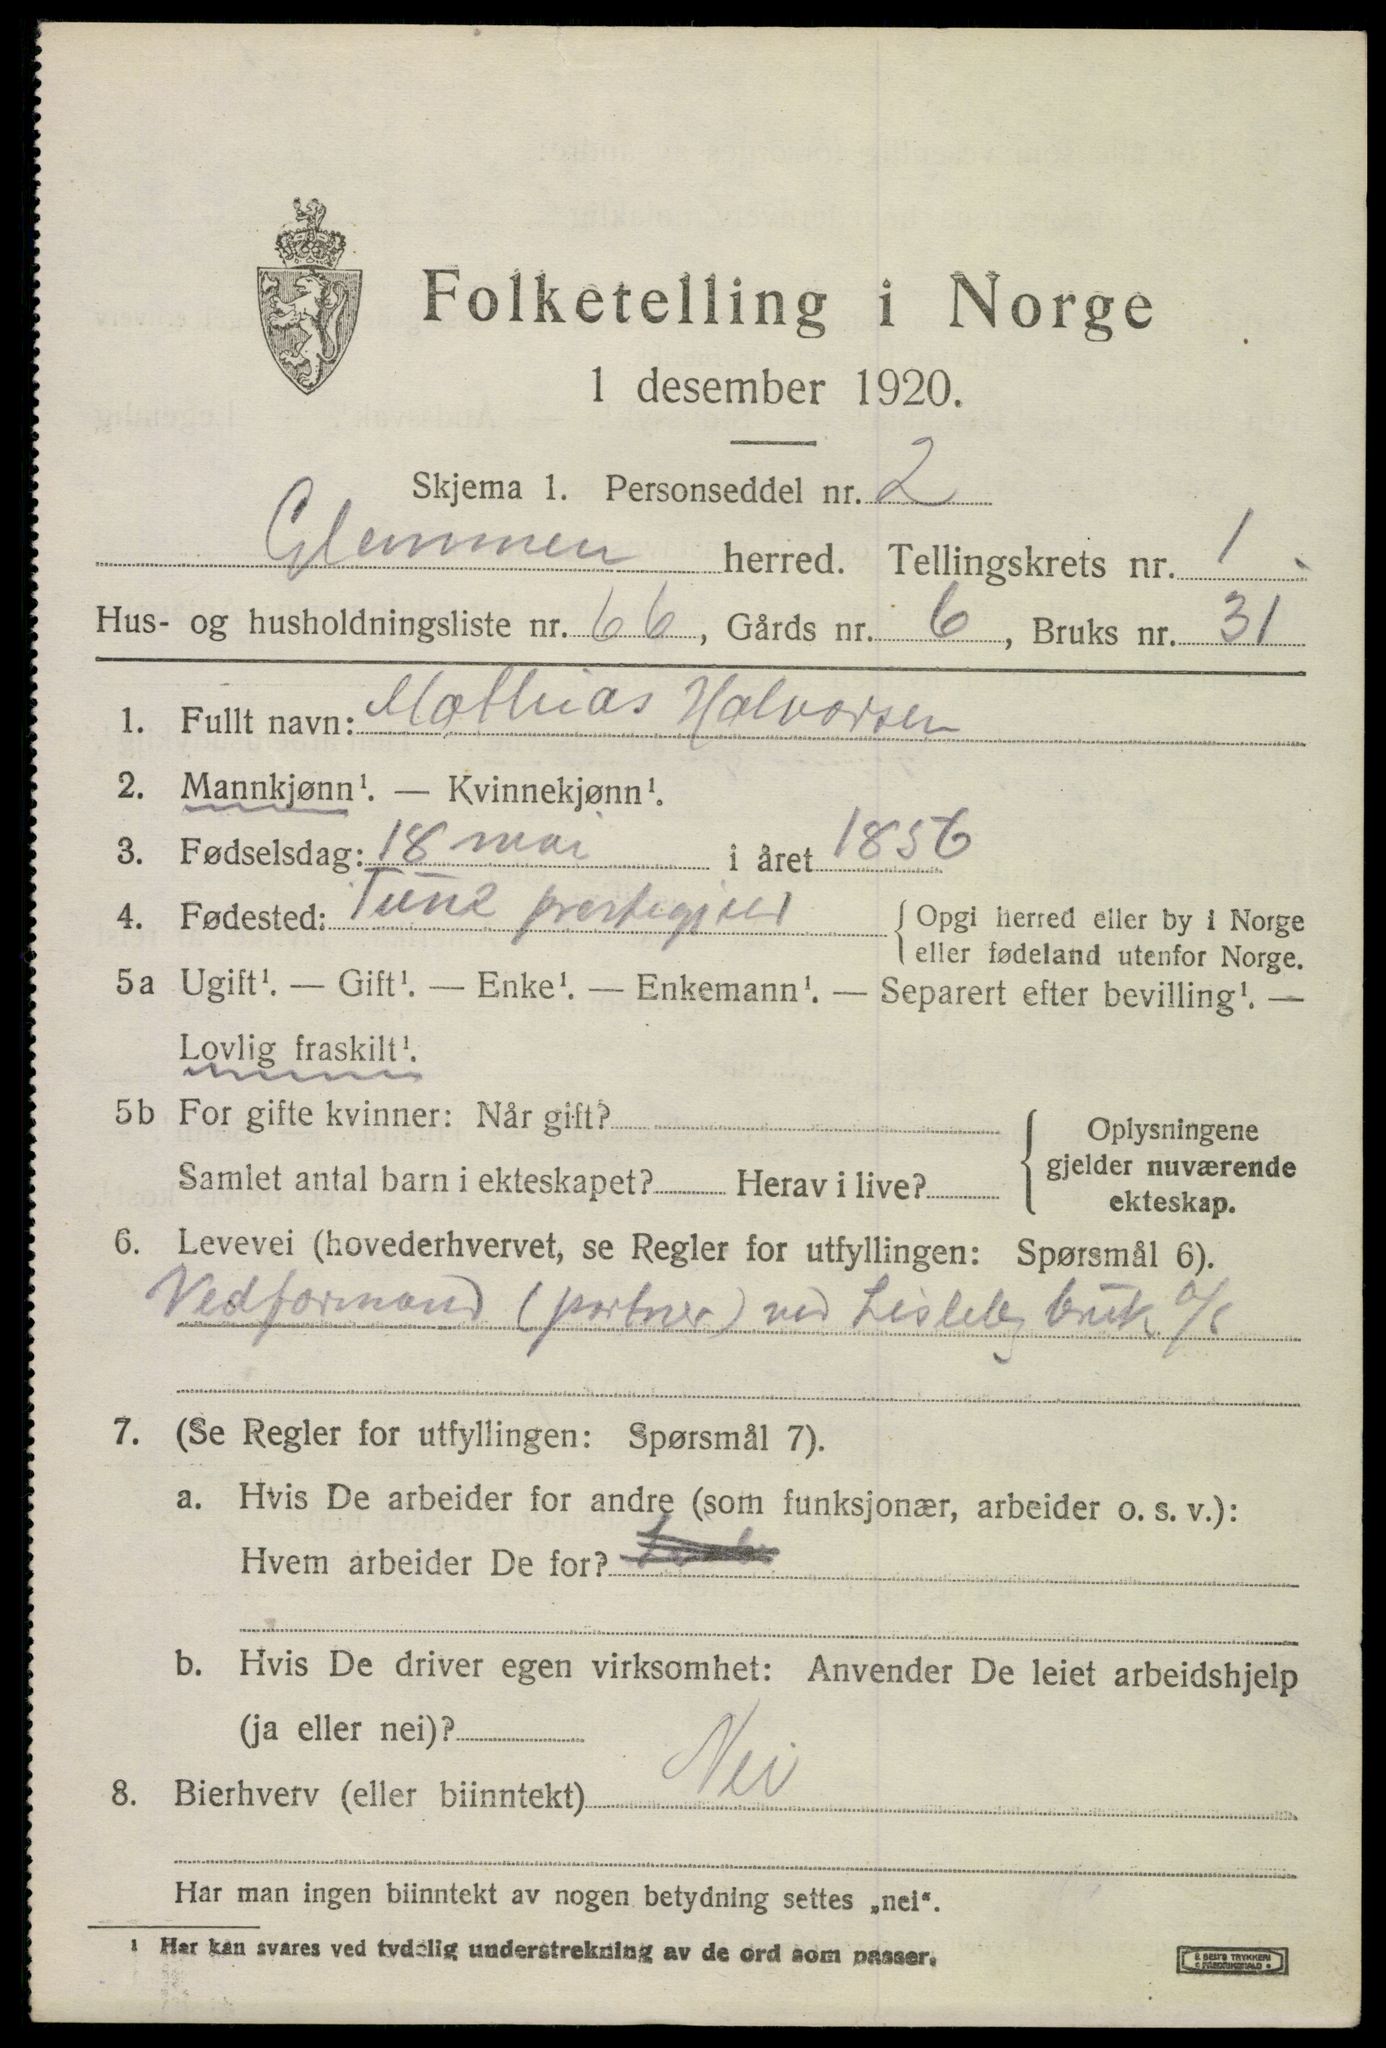 Folketelling i Norge
1 desember 1920.
Skjema 1. Personseddel nr. 2
Glemmen herred. Tellingskrets nr. 1
Hus- og husholdningsliste nr. 66, Gårds nr. 6, Bruks nr. 31
1. Fullt navn: Mathias Halvorsen
2. Mannkjønn¹. — Kvinnekjønn¹.
3. Fødselsdag: 18 mai i året 1856
4. Fødested: Tune prestegjeld { Opgi herred eller by i Norge
eller fødeland utenfor Norge.
5a Ugift¹. — Gift¹. — Enke¹. — Enkemann¹. — Separert efter bevilling¹. —
Lovlig fraskilt¹.
5b For gifte kvinner: Når gift? { Oplysningene
gjelder nuværende
ekteskap.
Samlet antal barn i ekteskapet? Herav i live?
6. Levevei (hovederhvervet, se Regler for utfyllingen: Spørsmål 6).
Vedformand (portner) ved Lisleby bruk a/s
7. (Se Regler for utfyllingen: Spørsmål 7).
a. Hvis De arbeider for andre (som funksjonær, arbeider o. s. v.):
Hvem arbeider De for?
b. Hvis De driver egen virksomhet: Anvender De leiet arbeidshjelp
(ja eller nei)?
8. Bierhverv (eller biinntekt) Nei
Har man ingen biinntekt av nogen betydning settes „nei“.
¹ Her kan svares ved tydelig understrekning av de ord som passer.